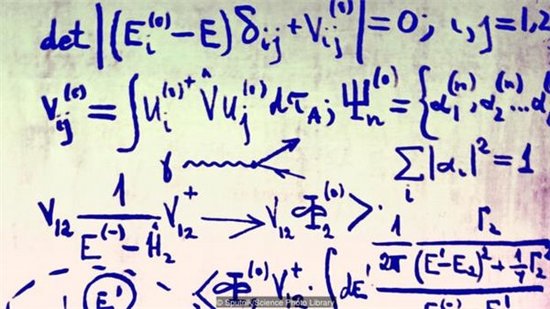 det|(E_i^(0)-E)δ_ij+V_ij^(0)|=0; i,j=1,2
V_ij^(0)=∫U_i^(0)+ V̂ U_j^(0) dτ_A; Ψ_n^(0)={α_1^(n),α_2^(n)...α
γ
∑_i|α_i|^2=1
V_12 1/(E^(-)-Ĥ_2) V_12^+ → V_12 Φ_2^(0)>·
1/2π Γ_2/((E'-E_2)^2+1/4Γ_2^2
<Φ^(0)V_12^+·∫dE'
E'
© Sputnik/Science Photo Library